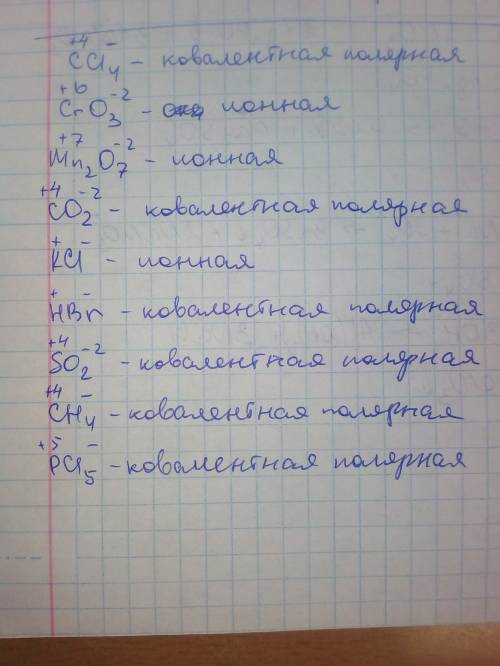 +4 –
CCl4 – ковалентная полярная
+6 -2
CrO3 – ионная
+7 -2
Mn2O7 – ионная
+4 -2
CO2 – ковалентная полярная
+ –
KCl – ионная
+ –
HBr – ковалентная полярная
+4 -2
SO2 – ковалентная полярная
+4 –
CH4 – ковалентная полярная
+5 –
PCl5 – ковалентная полярная